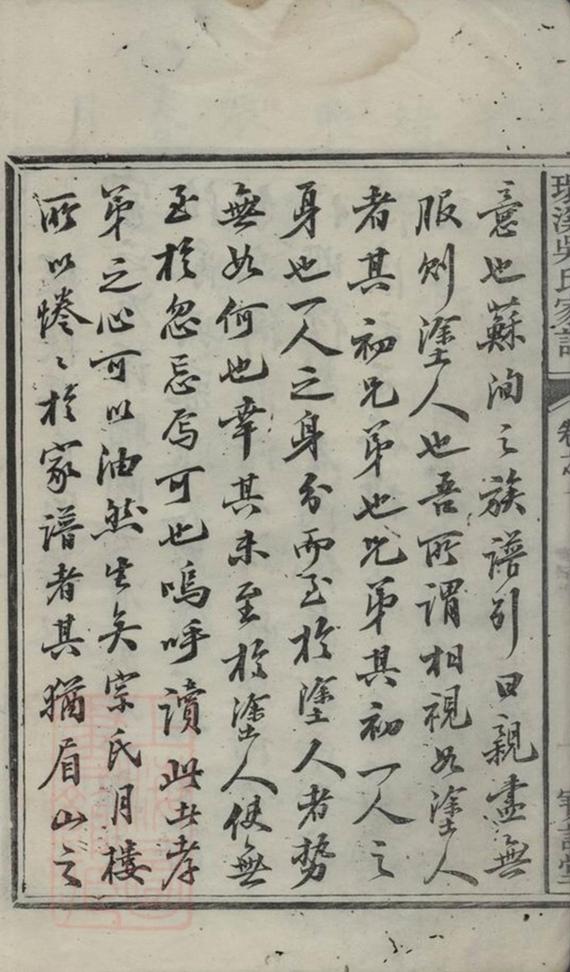 環溪吳氏家譜
卷之
意也蘇洵之族譜引曰親盡無
服則塗人也吾所謂相視如塗人
者其初兄弟也兄弟其初一人之
身也一人之身分而至於塗人者勢
無如何也幸其未至於塗人使無
至於忽忘焉可也嗚呼讀此者孝
弟之心可以油然生矣宗氏月樓
所以惓〻於家譜者其猶眉山之